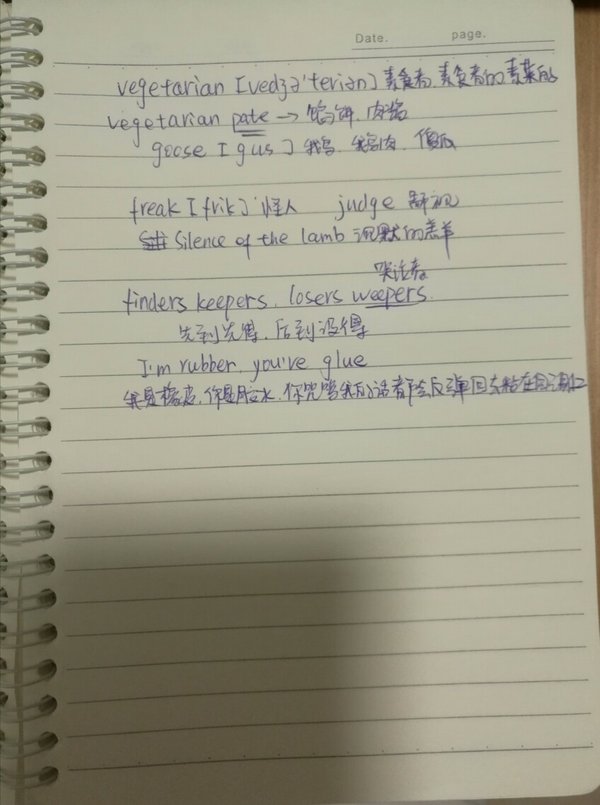 Date. page.
vegetarian [vedʒə'teriən] 素食者,素食者的 素菜的
vegetarian pate → 馅饼,肉酱
goose [gus] 鹅,鹅肉,傻瓜
freak [frik] 怪人 judge 审视
Silence of the lamb 沉默的羔羊
哭泣者
finders keepers, losers weepers
先到先得,后到没得
I'm rubber, you've glue
我是橡皮,你是胶水,你咒骂我的话都会反弹回去粘在自己